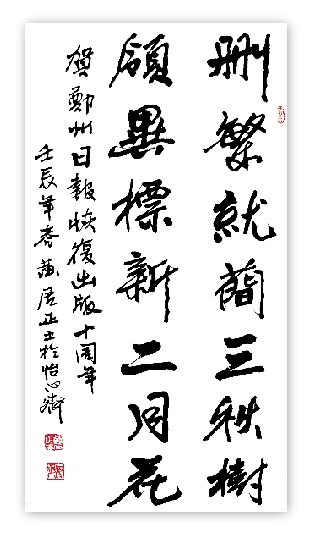 刪繁就簡三秋樹
領異標新二月花
賀鄭州日報恢復出版十周年
壬辰年春黃居正书於怡心齋